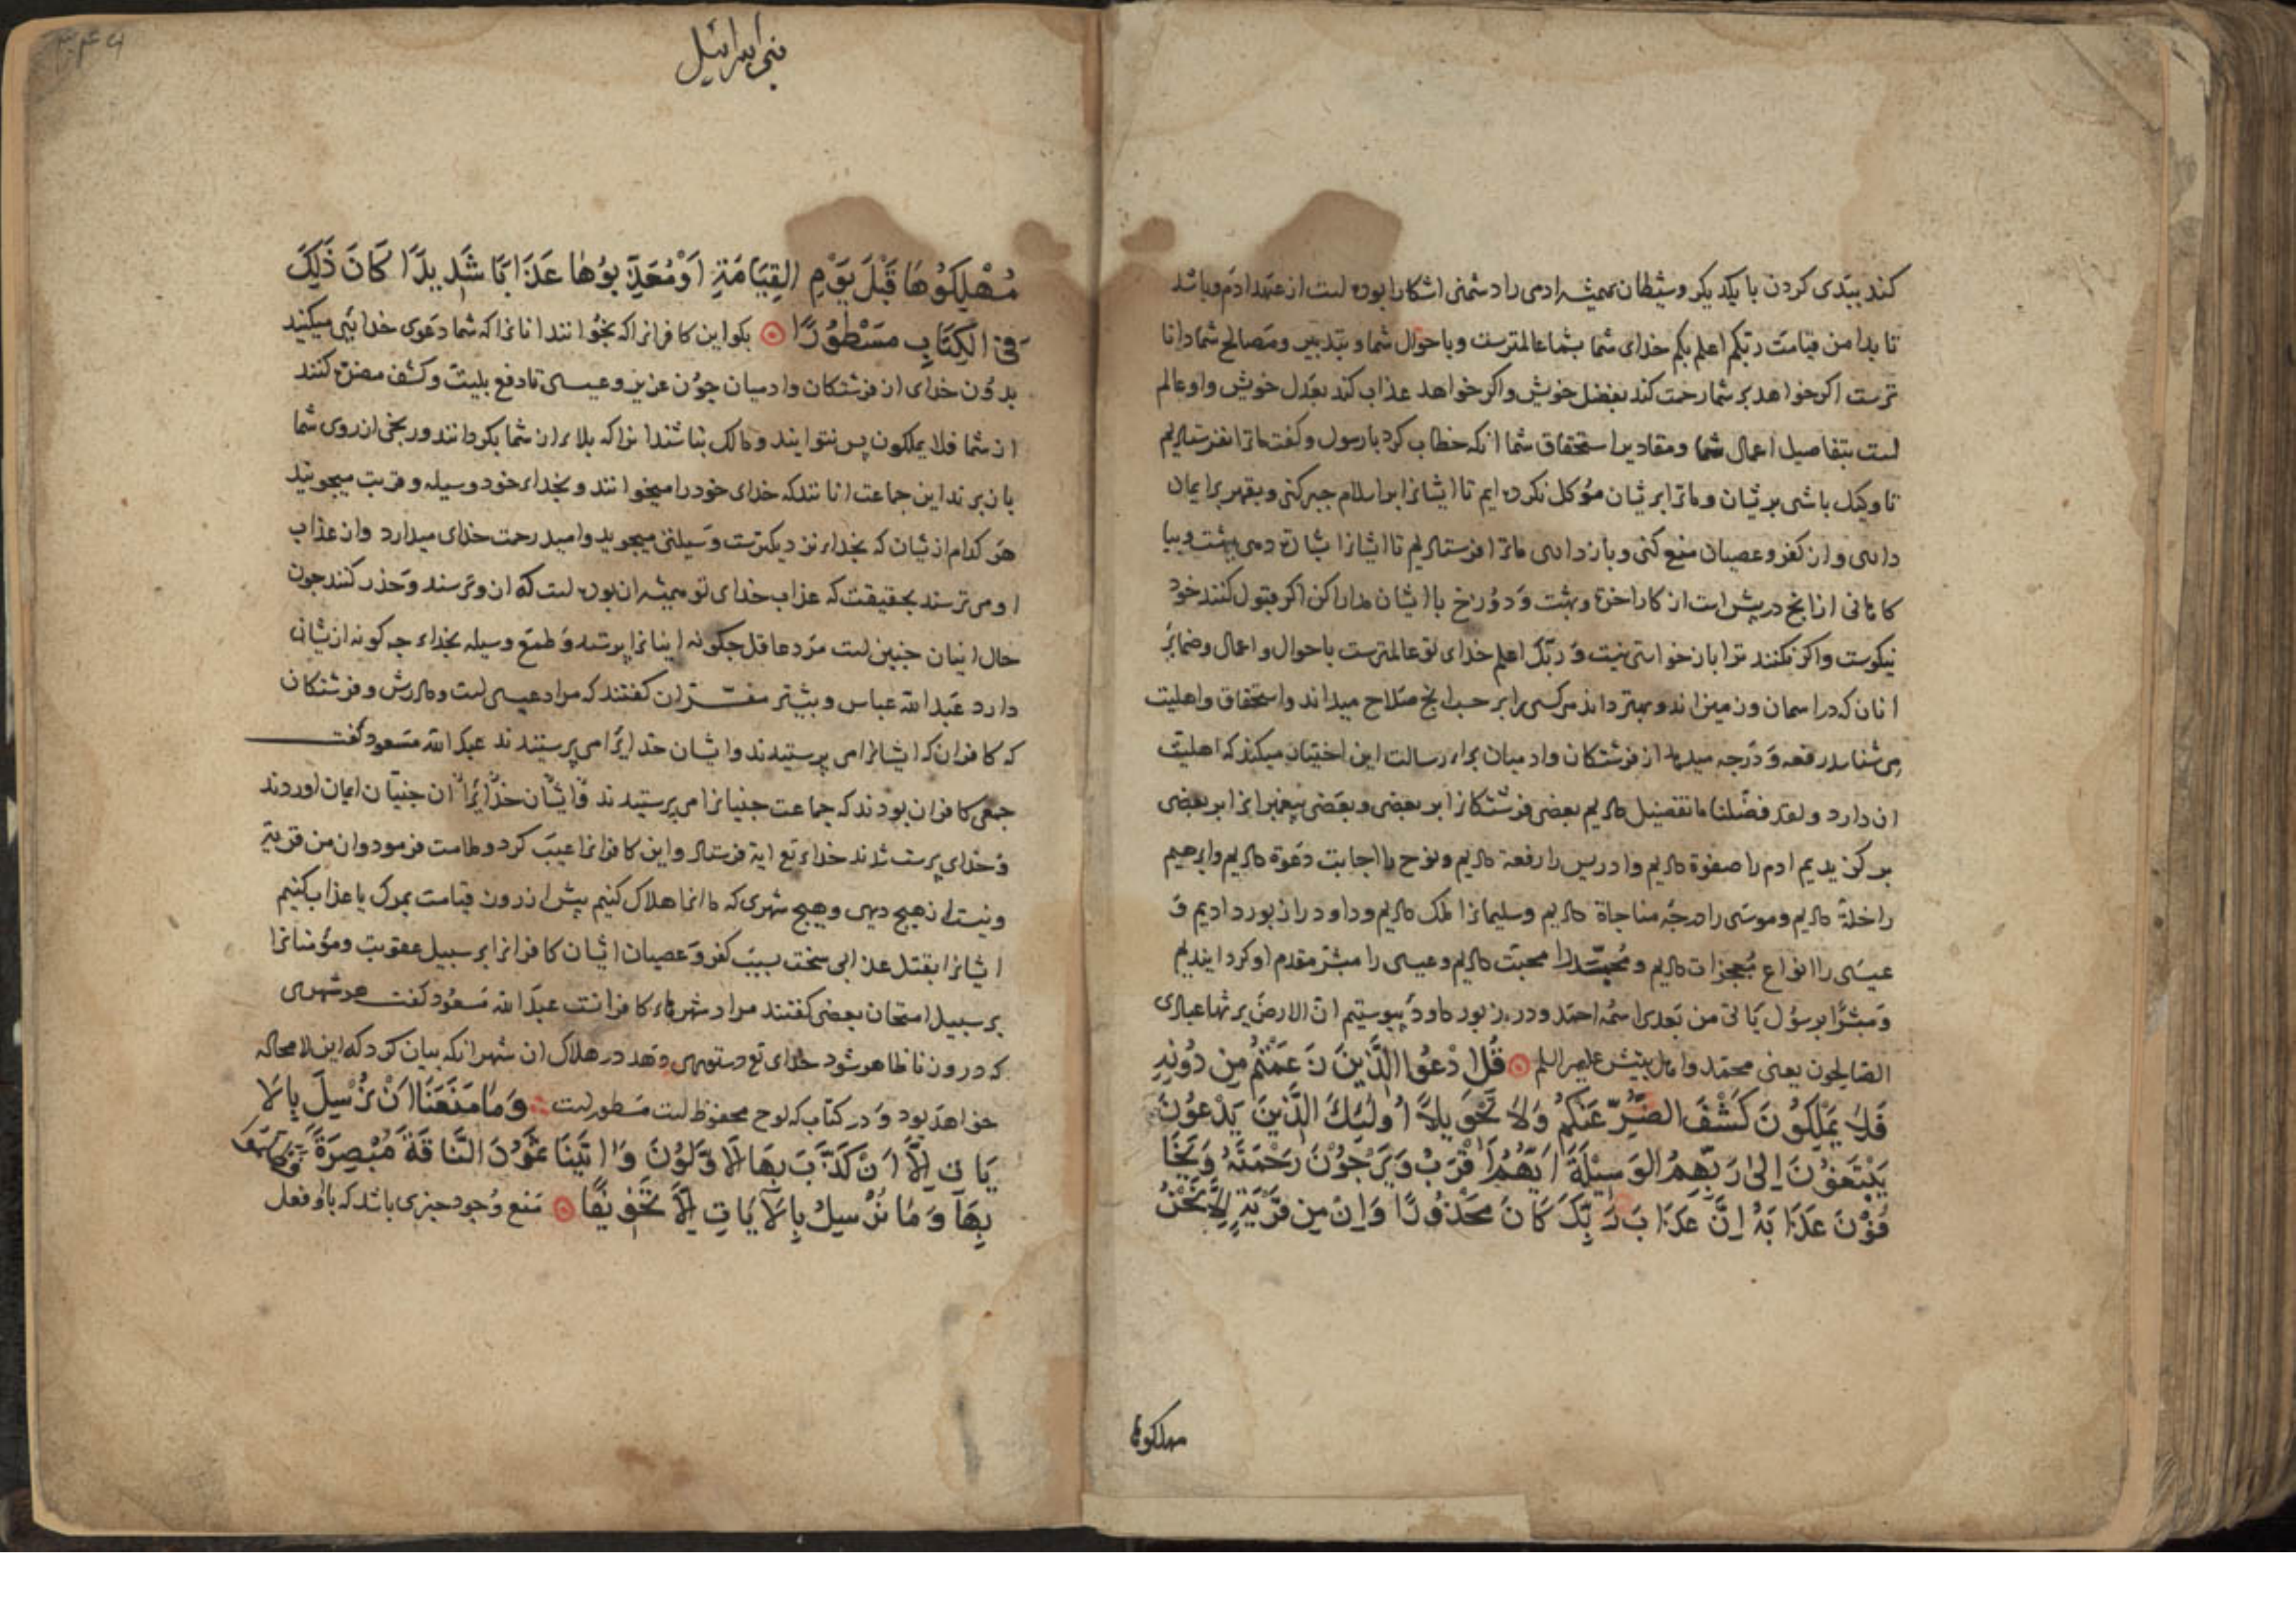 کند ببدی کردن با یکدیکر وشیطان همیشه ادمی را دشمنی اشکارا بوده است از عهد ادم و باشد
تا بدامن قیامت ربکم اعلم بکم خدای شما بشما عالمترست وباحوال شما وبتدبیر ومصالح شما دانا
ترست اکر خواهد بر شما رحمت کند بفضل خویش واکر خواهد عذاب کند بعدل خویش واو عالم
است بتفاصیل اعمال شما ومقادیر استحقاق شما انکه خطاب کرد با رسول وکفت ما ترا نفرستادیم
تا وکیل باشی بر شان وما ترا بر شان موکل نکرده ایم تا ایشانرا بر اسلام جبر کنی وبقهر بر ایمان
داری واز کفر وعصیان منع کنی وباز داری ما ترا فرستادیم تا ایشانرا بشارة دهی ببهشت وبیا
کاهانی ازانچ در پیش است از کار اخرة وبهشت ودوزخ با ایشان مدارا کن اکر قبول کنند خود
نیکوست واکر نکنند ترا بازخواستی نیست وربک اعلم خدای تو عالمترست باحوال واعمال وضمایر
انان که در اسمان وزمین اند وبهتر داند هر کسی را بر حسب انچ صلاح میداند واستحقاق واهلیت
می شناسد رفعه ودرجه میدهد از فرشتکان وادمیان برای رسالت این اختیار میکند که اهلیت
ان دارد ولقد فضلنا ما تفضیل دادیم بعضی فرشتکانرا بر بعضی وبعضی پیغمبرانرا بر بعضی
بر کزیدیم ادم را صفوة دادیم وادریس را رفعة دادیم ونوح را اجابت دعوة دادیم وابرهیم
را خلة دادیم وموسی را درجه مناجاة دادیم وسلیمانرا ملک دادیم وداود را زبور دادیم و
عیسی را انواع معجزات دادیم ومحمد را محبت دادیم وعیسی را مبشر مقدم او کردانیدیم
ومبشرا برسول یاتی من بعدی اسمه احمد ودر زبور داود بنوشتیم ان الارض یرثها عبادی
الصالحون یعنی محمد واهل بیتش علیهم السلم قُلِ ادْعُوا الَّذِينَ زَعَمْتُمْ مِن دُونِهِ
فَلَا يَمْلِكُونَ كَشْفَ الضُّرِّ عَنْكُمْ وَلَا تَحْوِيلًا أُولَئِكَ الَّذِينَ يَدْعُونَ
يَبْتَغُونَ إِلَىٰ رَبِّهِمُ الْوَسِيلَةَ أَيُّهُمْ أَقْرَبُ وَيَرْجُونَ رَحْمَتَهُ وَيَخَا
فُونَ عَذَابَهُ إِنَّ عَذَابَ رَبِّكَ كَانَ مَحْذُورًا وَإِنْ مِن قَرْيَةٍ إِلَّا نَحْنُ
مهلکوها
بنی اسرائیل
مُهْلِكُوهَا قَبْلَ يَوْمِ الْقِيَامَةِ أَوْ مُعَذِّبُوهَا عَذَابًا شَدِيدًا كَانَ ذَلِكَ
فِي الْكِتَابِ مَسْطُورًا بکو این کافرانرا که بخوانند انانرا که شما دعوی خدایی میکنید
بدون خدای از فرشتکان وادمیان چون عزیر وعیسی تا دفع بلیت وکشف مضرت کنند
از شما فلا یملکون پس نتوانند ومالک نباشند انرا که بلا را از شما بکردانند ورنجی از روی شما
بازبرند این جماعت انانند که خدای خود را میخوانند وبخدای خود وسیله وقربت میجویند
هر کدام ازیشان که بخدای نزدیکترست وسیلتی میجوید وامید رحمت خدای میدارد واز عذاب
او می ترسند بحقیقت که عذاب خدای تو همیشه ان بوده است که از و ترسند وحذر کنند چون
حال اینان چنین است مرد عاقل چکونه اینانرا پرستد وطمع وسیله بخدای چه کونه ازیشان
دارد عبدالله عباس وبیشتر مفسران کفتند که مراد عیسی است ومادرش وفرشتکان
که کافران که ایشانرا می پرستیدند وایشان خدایرا می پرستیدند عبدالله مسعود کفت
جمعی کافران بودند که جماعت جنیانرا می پرستیدند وایشان خدایرا ان جنیان ایمان اوردند
وخدای پرست شدند خدای تع ایة فرستاد واین کافرانرا عیب کرد وملامت فرمود وان من قریة
ونیست از هیچ دیهی وهیچ شهری که ما انرا هلاک کنیم پیش از روز قیامت بمرک یا عذاب کنیم
ایشانرا بقتل عذابی سخت بسبب کفر وعصیان ایشان کافرانرا بر سبیل عقوبت ومومنانرا
بر سبیل امتحان بعضی کفتند مراد شهرهای کافرانست عبدالله مسعود کفت هر شهری
که درو زنا ظاهر شود خدای تع دستوری دهد در هلاک ان شهر انکه بیان کرد که این لامحاله
خواهد بود ودر کتاب که لوح محفوظ است مسطور است وَمَا مَنَعَنَا أَنْ نُرْسِلَ بِالْآ
يَاتِ إِلَّا أَنْ كَذَّبَ بِهَا الْأَوَّلُونَ وَآتَيْنَا ثَمُودَ النَّاقَةَ مُبْصِرَةً فَظَلَمُوا
بِهَا وَمَا نُرْسِلُ بِالْآيَاتِ إِلَّا تَخْوِيفًا منع وجود چیزی باشد که با او فعل